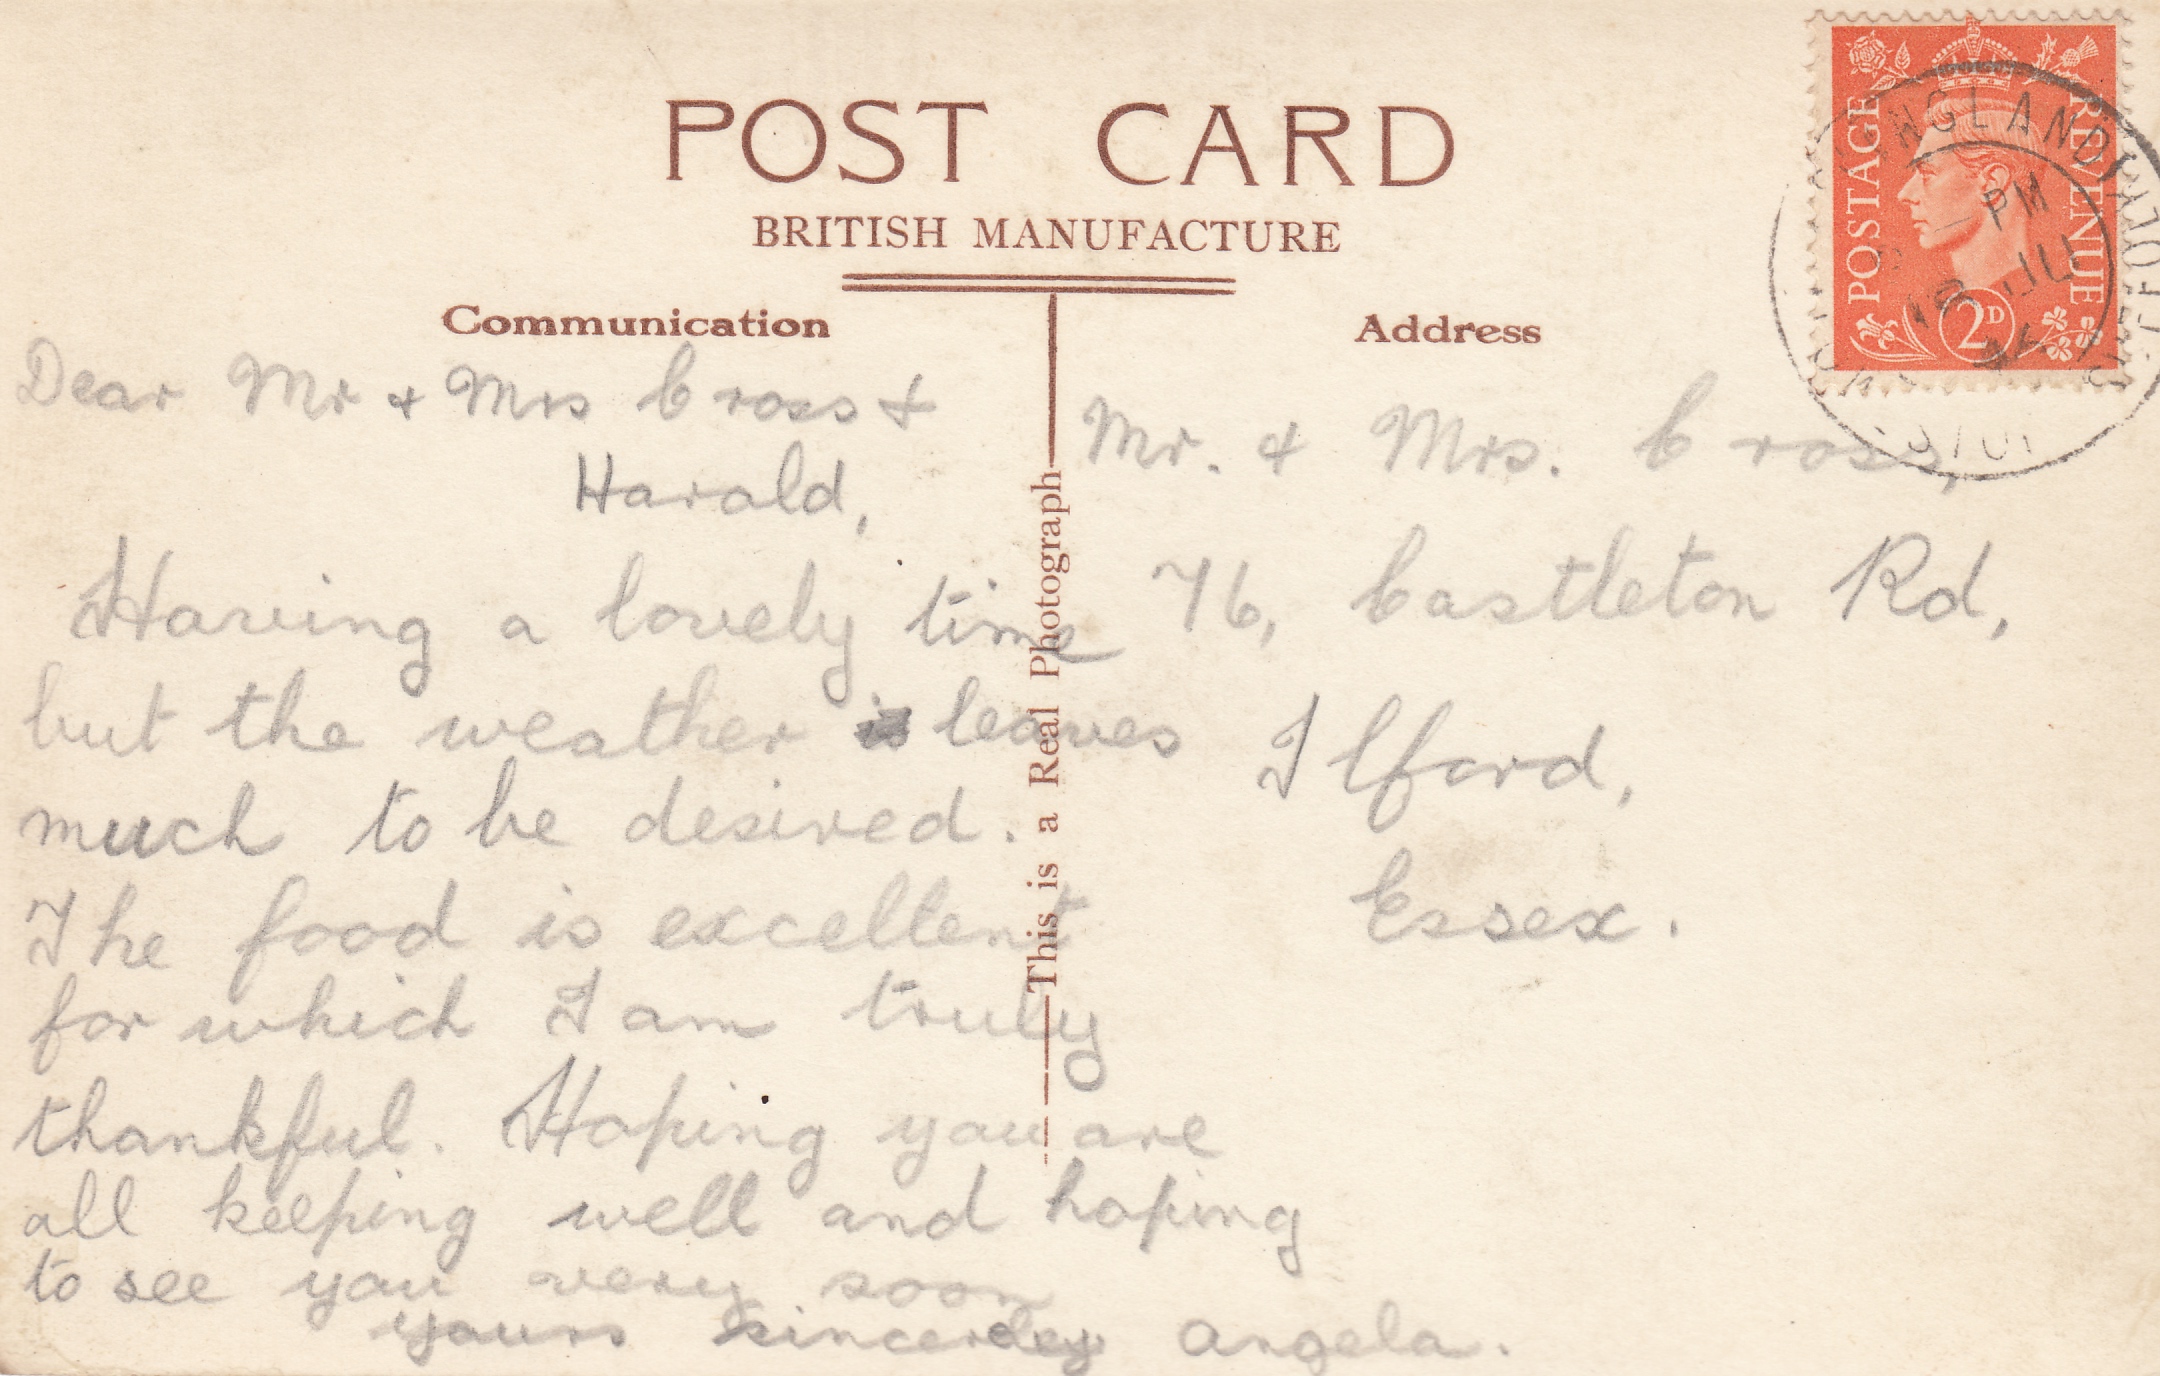 POST CARD
BRITISH MANUFACTURE
Communication
Address
POSTAGE
REVENUE
2D
ENGLAND
PM
18 JUL
Dear Mr + Mrs Cross +
Harald,
Having a lovely time
but the weather is leaves
much to be desired.
The food is excellent
for which I am truly
thankful. Hoping you are
all keeping well and hoping
to see you very soon
yours sincerley Angela.
This is a Real Photograph
Mr. + Mrs. Cross,
76, Castleton Rd,
Ilford,
Essex.